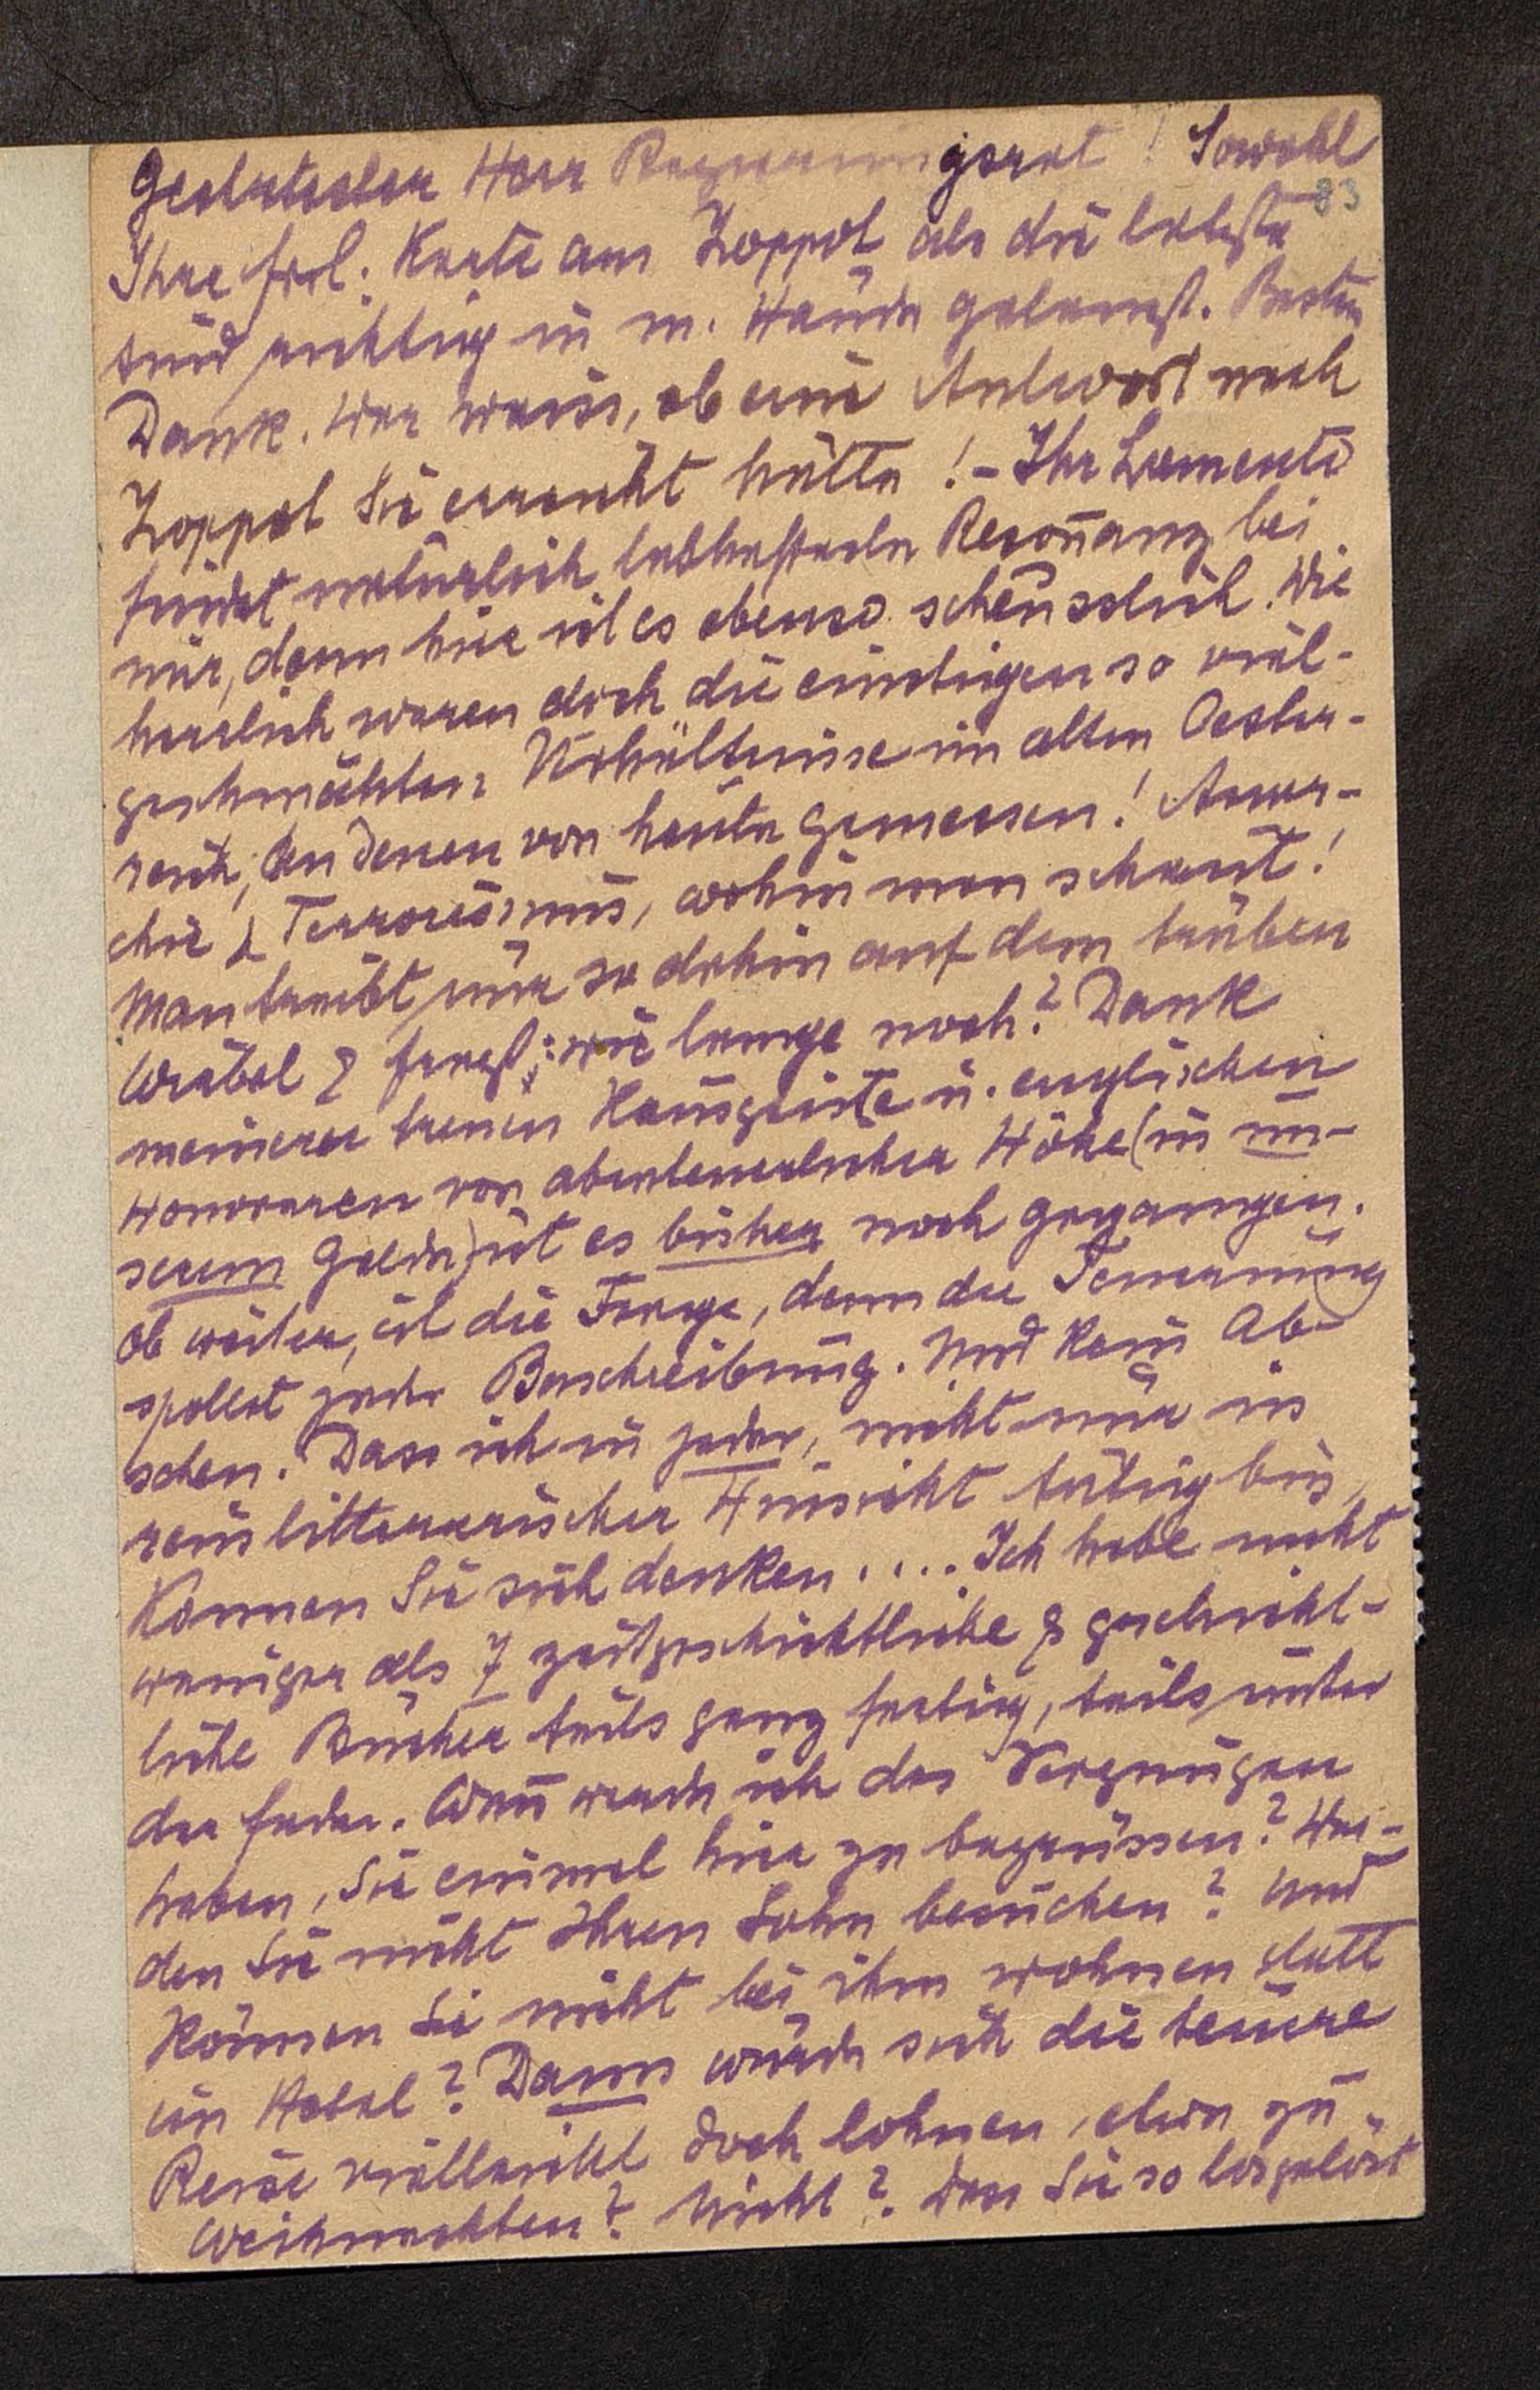 Geehrtester Herr Regierungsrat! Sowohl
83
Ihre frdl. Karte aus Zoppot als die letzte
sind richtig in m. Hände gelangt. Besten
Dank. Wer weiss, ob eine Antwort nach
Zoppot Sie erreicht hätte! - Ihr Lamento
findet natürlich lebhafteste Resonanz bei
mir, denn hier ist es ebenso scheusslich. Wie
herrlich waren doch die einstigen so viel-
geschmähten Verhältnisse im alten Oester-
reich, an denen von heute gemessen! Anar-
chie & Terrorismus, wohin man schaut!
Man treibt nur so dahin auf dem trüben
Wirbel & fragt: wie lange noch? Dank
meinem treuen Hausgeiste u. englischen
Honoraren von abenteuerlicher Höhe (in un-
serem Gelde) ist es bisher noch gegangen.
Ob weiter, ist die Frage, denn die Teuerung
spottet jeder Beschreibung. Und kein Ab-
sehen. Dass ich in jeder, nicht nur in
rein litterarischer Hinsicht tätig bin,
können Sie sich denken.... Ich habe nicht
weniger als 7 zeitgeschichtliche & geschicht-
liche Bücher teils ganz fertig, teils unter
der Feder. Wann werde ich das Vergnügen
haben, Sie einmal hier zu begrüssen? Wer-
den Sie nicht Ihren Sohn besuchen? Und
können Sie nicht bei ihm wohnen statt
im Hotel? Dann würde sich die teuere
Reise vielleicht doch lohnen, etwa zu
Weihnachten? Nicht? Dass Sie so losgelöst